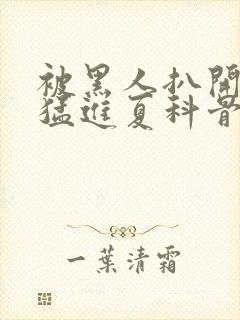 被黑人扒開
猛進夏科骨
一葉清霜